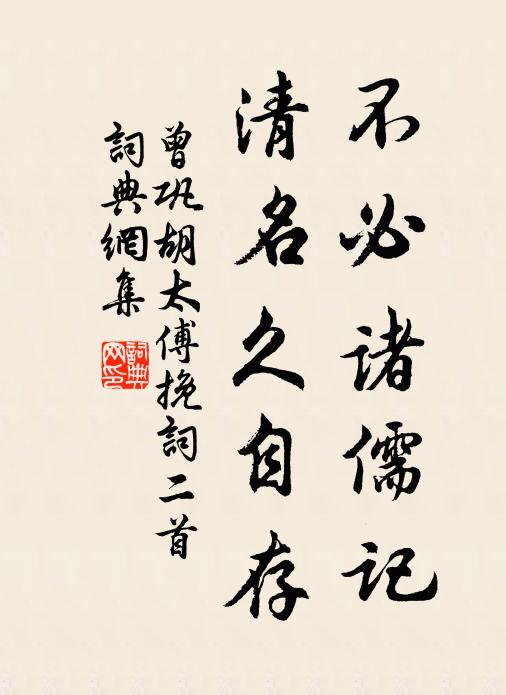 不必诸儒记
清名久自存
曾巩胡太傅挽詞二首
詞典網集
詞典网印